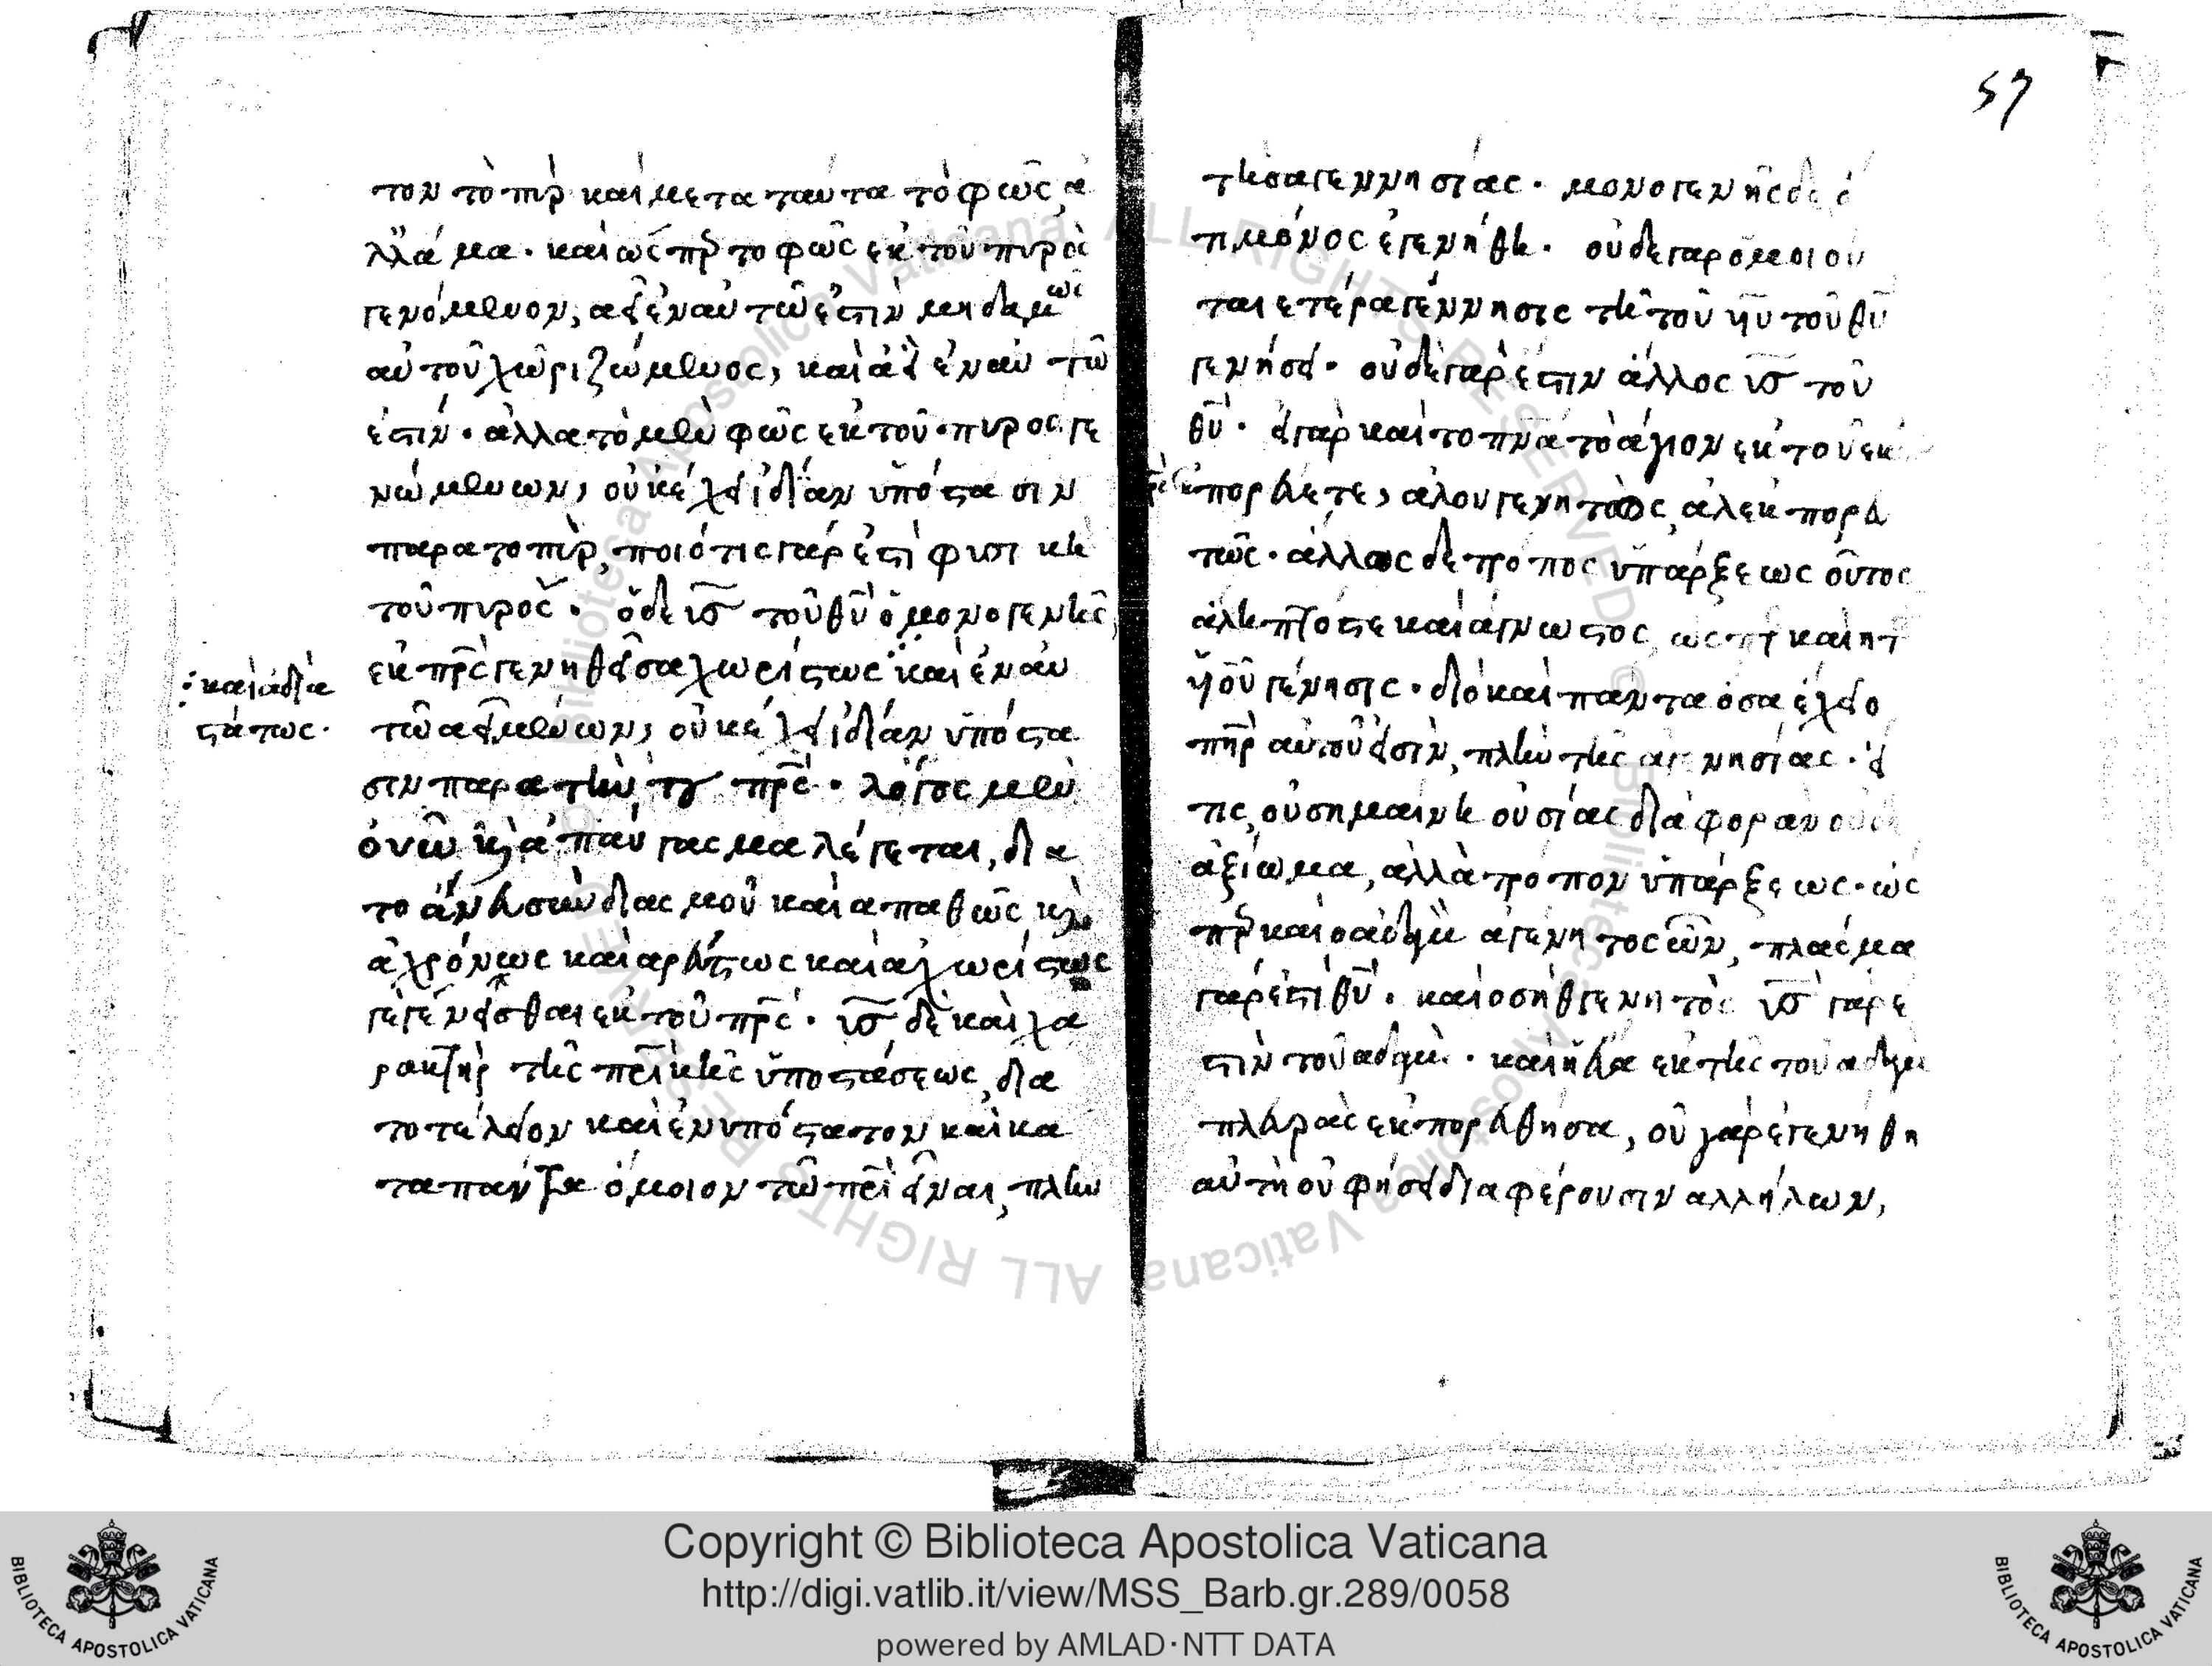 τον το πῦρ καὶ μετα ταύτα τὸ φῶς, ἀ
λλ' ἅμα· καὶ ὡς πῦρ το φῶς ἐκ τοῦ πυρὸς
γενόμενον, αεὶ ἐν αὐτῶ ἐστὶν μηδαμῶς
αὐτοῦ χωριζώμενος, καὶ ἀεὶ ἐν αὐτῶ
ἐστίν· ἀλλα τὸ μὲν φῶς ἐκ τοῦ πυρος γε
νώμενων, οὐκ έχει ἰδίαν ὑπόστασιν
παρα το πῦρ, ποιότις γάρ ἐστὶ φυσικὴ
τοῦ πυρος· ὅδε υς τοῦ θυ ὁ μονογενὴς,
εκ πρς γενηθεὶς αχωρίστως καὶ ἐν αὐ
:καὶ ἀδια
στάτως·
τῶ αεὶ μένων, οὐκ έχει ἰδίαν ὑπόστα
σιν παρα τὴν του πρς· λόγος μὲν
ουν κὶ ἀπαύγασμα λέγεται, δια
το ἄνευ σινδιασμοῦ καὶ απαθῶς κὶ
ἀχρόνως καὶ αρεύστως καὶ αχωρίστως
γεγενεῖσθαι εκ τοῦ πρς· υς δὲ καὶ χα
ρακτὴρ τῆς πρικῆς ὑποστάσεως, δια
το τέλειον καὶ ἐνυπόστατον καὶ κα
τα πάντα όμοιον τῶ πρι εἶναι, πλὴν
57
τῆς αγεννησίας· μονογενὴς δε ὁ
τι μόνος ἐγενήθη· οὐδε γαρ ὅμοιου
ται ετέρα γέννησις τῆ τοῦ υυ τοῦ θυ
γενήσει· οὐδὲ γαρ ἐστιν ἀλλος υς τοῦ
θυ· εἰ γαρ καὶ το πνα τὸ ἁγιον εκ του
πορεύετε, αλ ου γενητος, αλ εκπορευ
τῶς· άλλος δε τροπος ὑπάρξεως οὗτος
άληπτος τε καὶ άγνωστος, ως
υου γένησις· διὸ καὶ παντα όσα έχει ο
πηρ αυτοῦ εἰσὶν, πλὴν τῆς αγεννησίας· ἡ
τις, οὐ σημαίνει οὐσίας διαφοραν
ἀξίωμα, ἀλλὰ τροπον ὑπάρξεως· ὡς
πρ καὶ ο αδαμ αγενητος ὢν, πλασμα
γαρ ἐστὶ θυ· καὶ ο σὴθ γενητὸς υς γαρ ε
στὶν τοῦ αδαμ· καὶ ἡ εύα εκ τῆς του αδαμ
πλευρας εκπορευθησα, οὐ γαρ ἐγενήθη
αὐτὴ οὐ φήσει διαφέρουσιν αλλήλων,
Copyright © Biblioteca Apostolica Vaticana
http://digi.vatlib.it/view/MSS_Barb.gr.289/0058
powered by AMLAD·NTT DATA
BIBLIOTECA APOSTOLICA VATICANA
BIBLIOTECA APOSTOLICA VATICANA